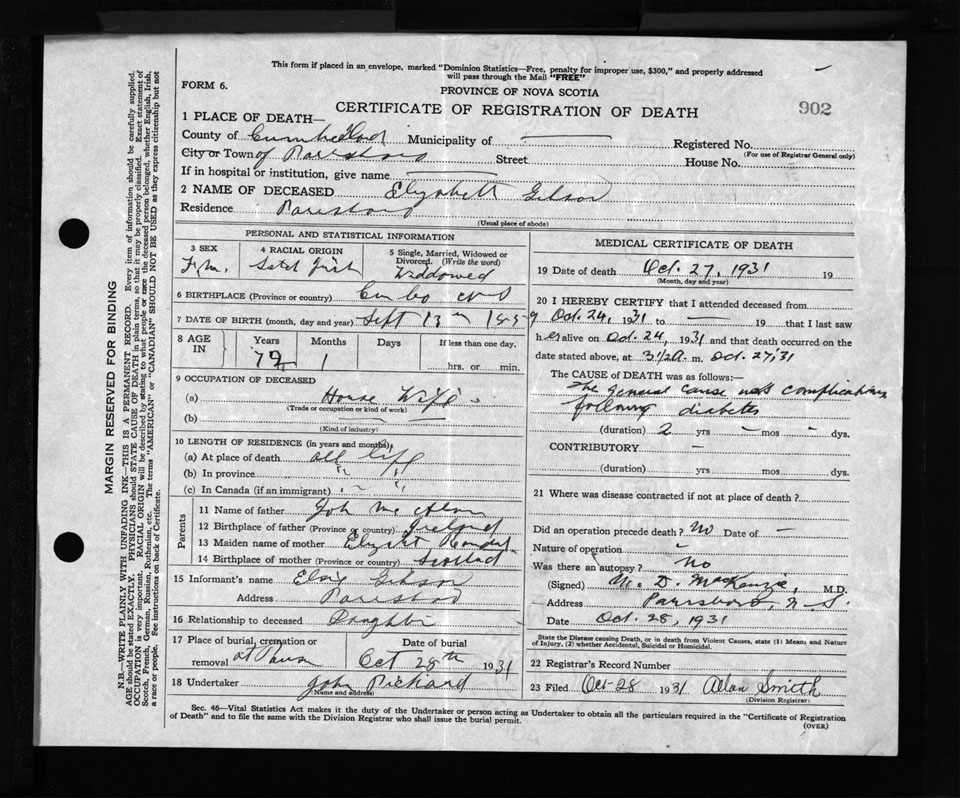 This form if placed in an envelope, marked "Dominion Statistics—Free, penalty for improper use, $300," and properly addressed
will pass through the Mail "FREE"
FORM 6.
PROVINCE OF NOVA SCOTIA
CERTIFICATE OF REGISTRATION OF DEATH
902
1 PLACE OF DEATH—
County of Cumberland Municipality of — Registered No.
(For use of Registrar General only)
City or Town of Parrsboro Street House No.
If in hospital or institution, give name
2 NAME OF DECEASED Elizabeth Gibson
Residence Parrsboro
(Usual place of abode)
PERSONAL AND STATISTICAL INFORMATION
3 SEX
4 RACIAL ORIGIN
5 Single, Married, Widowed or Divorced. (Write the word)
Widdowed
6 BIRTHPLACE (Province or country)
7 DATE OF BIRTH (month, day and year) Sept 13th 1859
8 AGE IN
Years Months Days If less than one day.
72 1
hrs. or min.
9 OCCUPATION OF DECEASED
(a) House Wife
(Trade or occupation or kind of work)
(b)
(Kind of industry)
10 LENGTH OF RESIDENCE (in years and months)
(a) At place of death all life
(b) In province " "
(c) In Canada (if an immigrant) " "
Parents
11 Name of father John
12 Birthplace of father (Province or country) Ireland
13 Maiden name of mother Elizabeth
14 Birthplace of mother (Province or country) Scotland
15 Informant's name Gibson
Address Parrsboro
16 Relationship to deceased Daughter
17 Place of burial, cremation or removal
Date of burial
Oct 28th 1931
18 Undertaker John Rickard
(Name and address)
MEDICAL CERTIFICATE OF DEATH
19 Date of death Oct. 27, 1931 19
(Month, day and year)
20 I HEREBY CERTIFY that I attended deceased from
Oct. 24, 1931 to — 19 that I last saw
her alive on Oct. 24, 1931 and that death occurred on the
date stated above, at 3 1/2 a. m. Oct. 27, '31
The CAUSE of DEATH was as follows:—
The general cause was complications
following diabetes
(duration) 2 yrs – mos – dys.
CONTRIBUTORY –
(duration) yrs. mos. dys.
21 Where was disease contracted if not at place of death?
Did an operation precede death? No Date of –
Nature of operation –
Was there an autopsy? No
(Signed) M. D. MacKenzie, M.D.
Address Parrsboro, N.S.
Date Oct. 28, 1931
State the Disease causing Death, or in death from Violent Causes, state (1) Means and Nature
of Injury, (2) whether Accidental, Suicidal or Homicidal.
22 Registrar's Record Number
23 Filed Oct-28 1931 Allan Smith
(Division Registrar)
Sec. 46—Vital Statistics Act makes it duty of the Undertaker or person acting as Undertaker to obtain all the particulars required in the "Certificate of Registration
of Death" and to file the same with the Division Registrar who shall issue the burial permit.
(OVER)
MARGIN RESERVED FOR BINDING
N.B.—WRITE PLAINLY WITH UNFADING INK—THIS IS A PERMANENT RECORD. Every item of information should be carefully supplied.
AGE should be stated EXACTLY. PHYSICIANS should STATE CAUSE OF DEATH in plain terms, so that it may be properly classified. Exact statement of
OCCUPATION is very important. RACIAL ORIGIN will be described by stating to what people or race the deceased person belonged, whether English, Irish,
Scotch, French, German, Russian, Ruthenian, etc. The terms "AMERICAN" or "CANADIAN" SHOULD NOT BE USED as they express citizenship but not
a race or people. See instructions on back of Certificate.